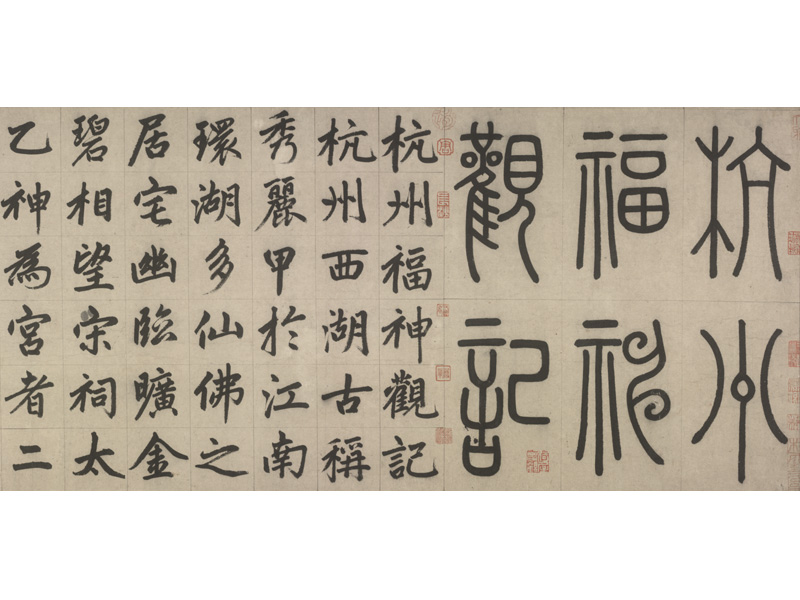 杭州
福神
觀記
杭州福神觀記
杭州西湖古稱
秀麗甲於江南
環湖多仙佛之
居宅幽臨曠金
碧相望宋祠太
乙神為宮者二